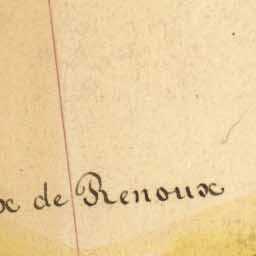 x de Renoux